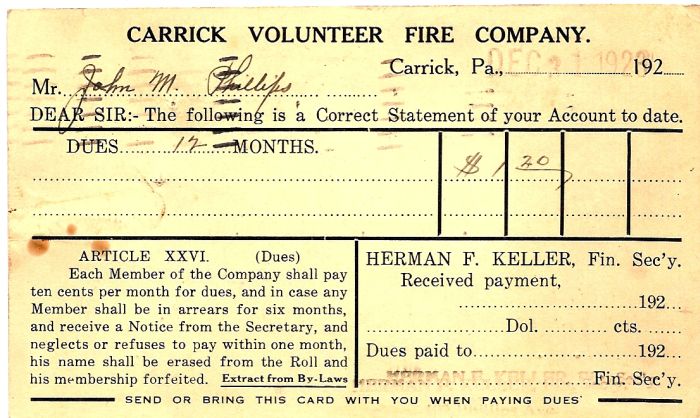 CARRICK VOLUNTEER FIRE COMPANY.
Carrick, Pa., DEC 1 192 192
Mr. John M. Phillips
DEAR SIR:- The following is a Correct Statement of your Account to date.
DUES 12 MONTHS. $ 1 20
ARTICLE XXVI. (Dues)
Each Member of the Company shall pay
ten cents per month for dues, and in case any
Member shall be in arrears for six months,
and receive a Notice from the Secretary, and
neglects or refuses to pay within one month,
his name shall be erased from the Roll and
his membership forfeited. Extract from By-Laws
HERMAN F. KELLER, Fin. Sec'y.
Received payment,
192
Dol. cts.
Dues paid to 192
HERMAN F. KELLER Fin. Sec'y.
SEND OR BRING THIS CARD WITH YOU WHEN PAYING DUES